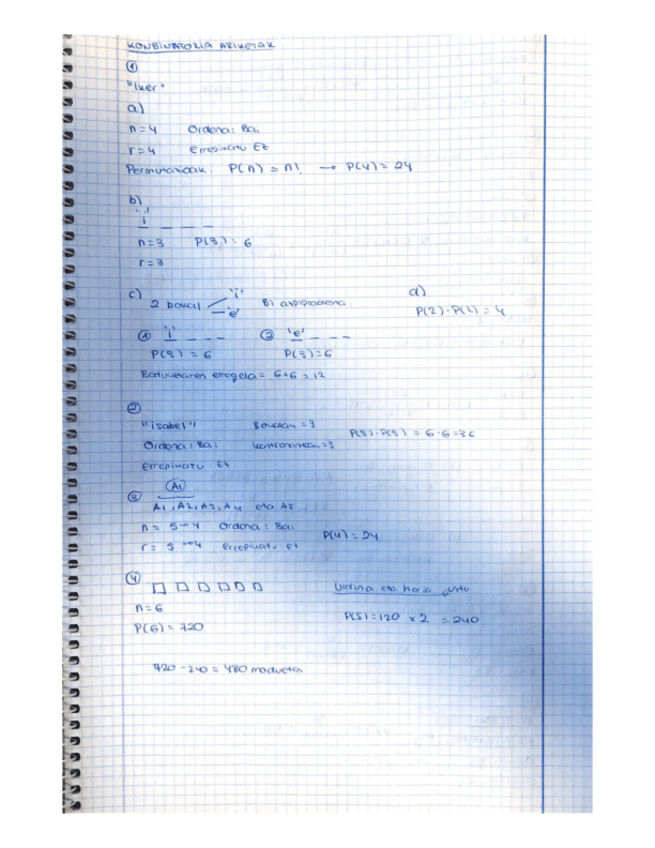 KONBINATORIA ARIKETAK
①
"Iker"
a)
n=4 Ordena: Bai
r=4 Errepikatu Ez
Permutazioak: P(n) = n! → P(4) = 24
b)
'i'
i _ _ _
n=3 P(3) = 6
r=3
c) 2 bokal 'i' 'e' Bi azpiproblema d)
P(2)·P(2) = 4
① 'i' _ _ _ ② 'e' _ _ _
P(3) = 6 P(3)=6
Batuketaren erregela = 6+6=12
②
"isabel" Bokalak =3 P(3)·P(3) = 6·6=36
Ordena: Bai kontsonanteak=3
Errepikatu Ez
③ A1
A1, A2, A3, A4 eta A5
n = 5→4 Ordena: Bai P(4) = 24
r = 5→4 Errepikatu Ez
④ □ □ □ □ □ □ Urdina eta horia
n=6 P(5)=120 x 2 = 240
P(6) = 720
720-240 = 480 modutan